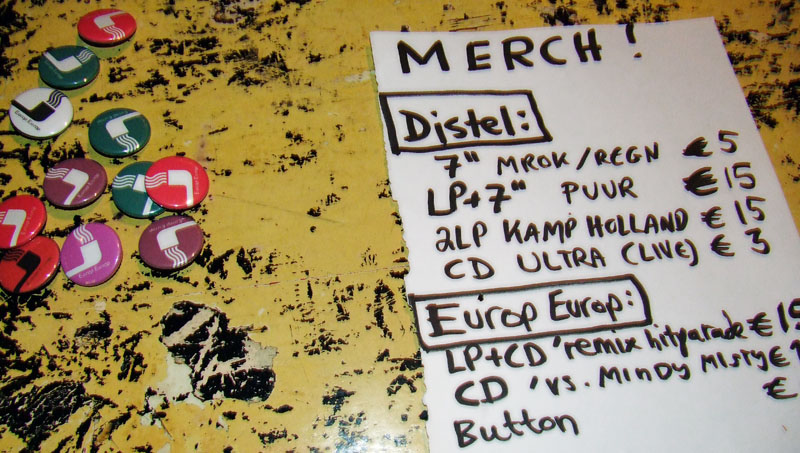 MERCH!
Distel:
7" MROK/REGN €5
LP+7" PUUR €15
2LP KAMP HOLLAND €15
CD ULTRA (LIVE) €3
Europ Europ:
LP+CD 'remix hitparade €15
CD 'vs. Mindy Misty €
Button €
Europ Europ
Europ Europ